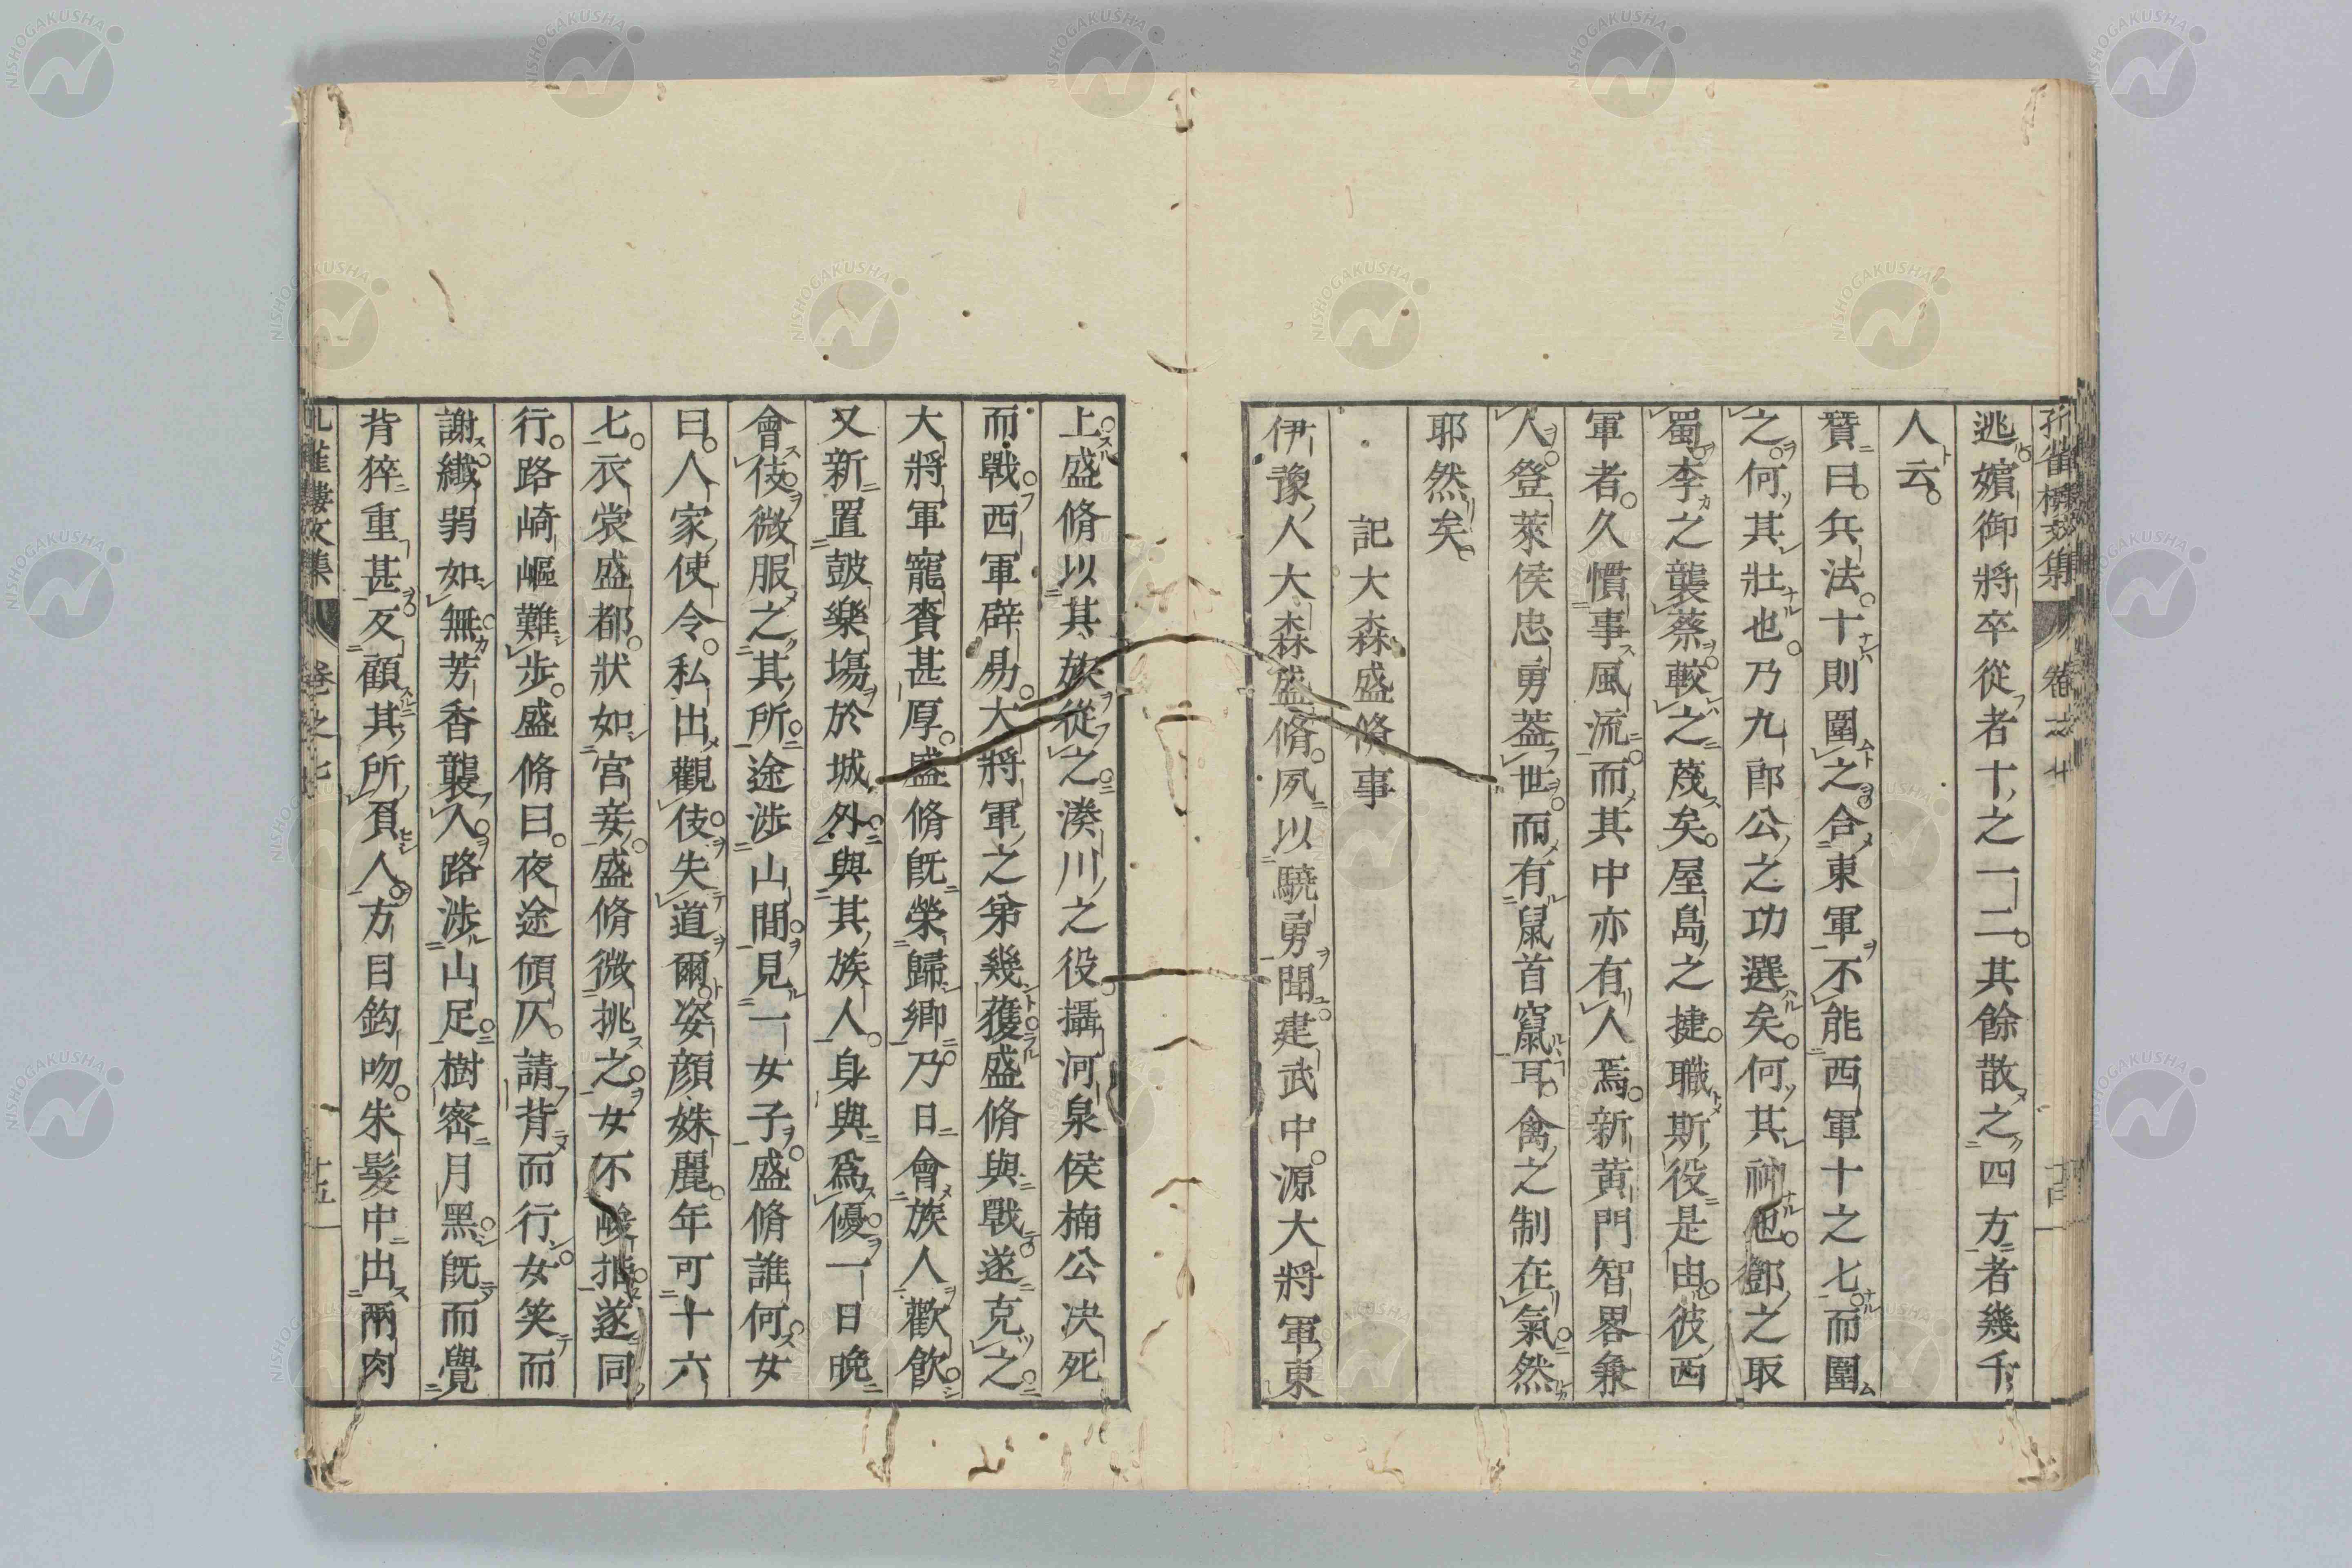 逃嬪御將卒從者十之一二其餘散之四方者幾千
人云
贊曰兵法十則圍之合東軍不能西軍十之七而圍
之何其壯也乃九郎公之功選矣何其神也鄧之取
蜀李之襲蔡較之蔑矣屋島之捷職斯役是由彼西
軍者久慣事風流而其中亦有人焉新黃門智畧兼
人登萊侯忠勇蓋世而有鼠首竄耳禽之制在氣然
耶然矣
記大森盛脩事
伊豫人大森盛脩夙以驍勇聞建武中源大將軍東
上盛脩以其族從之湊川之役攝河泉侯楠公决死
而戰西軍辟易大將軍之弟幾獲盛脩與戰遂克之
大將軍寵賚甚厚盛脩既榮歸鄉乃日會族人歡飲
又新置鼓樂塲於城外與其族人身與爲優一日晚
會伎微服之其所途涉山間見一女子盛脩誰何女
曰人家使令私出觀伎失道爾姿顔姝麗年可十六
七衣裳盛都狀如宮妾盛脩微挑之女不峻拒遂同
行路崎嶇難步盛脩曰夜途傾仄請背而行女笑而
謝纖弱如無芳香襲人路涉山足樹密月黑既而覺
背猝重甚反顧其所負人方目鈎吻朱髮中出兩肉
孔雀樓文集 卷之七 十五